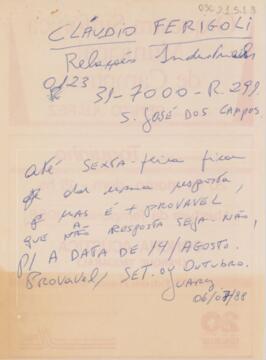 CLÁUDIO FERIGOLI
Relações Industriais
0123
31-7000 - R. 299
S. JOSÉ DOS CAMPOS
até SEXTA-feira ficou
de dar uma resposta,
MAS É + PROVAVEL
QUE A RESPOSTA SEJA NÃO,
P/ A DATA DE 14/AGOSTO.
PROVAVEL/ SET. ou OUTUBRO.
06/07/88
20